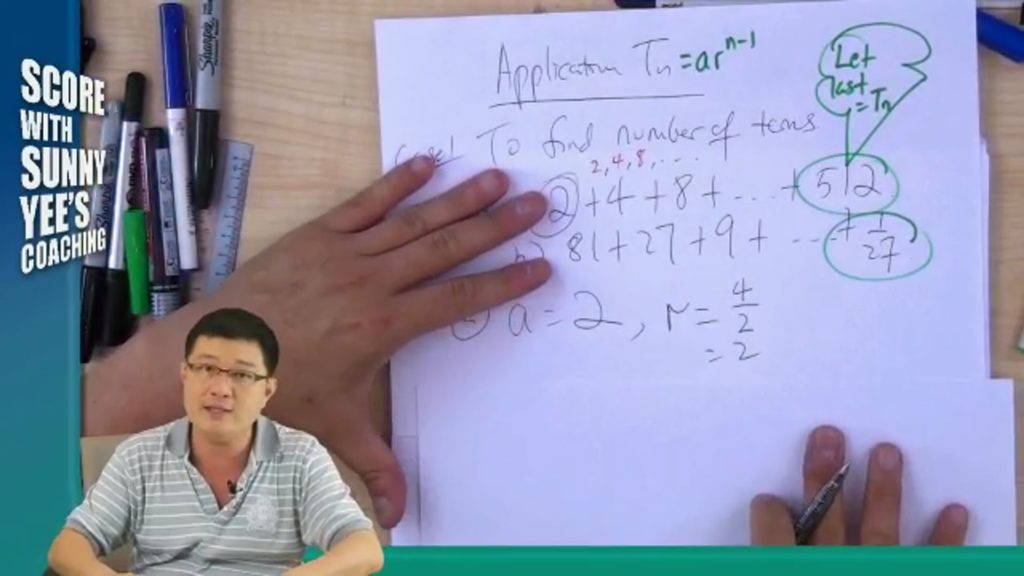 SCORE
WITH
SUNNY
YEE'S
COACHING
Sharpie
Application Tn = ar^n-1
Let
last
= Tn
To find number of terms
2, 4, 8, ....
2 + 4 + 8 + ... + 512
b) 81 + 27 + 9 + ... + 1/27
a = 2, r = 4/2
= 2